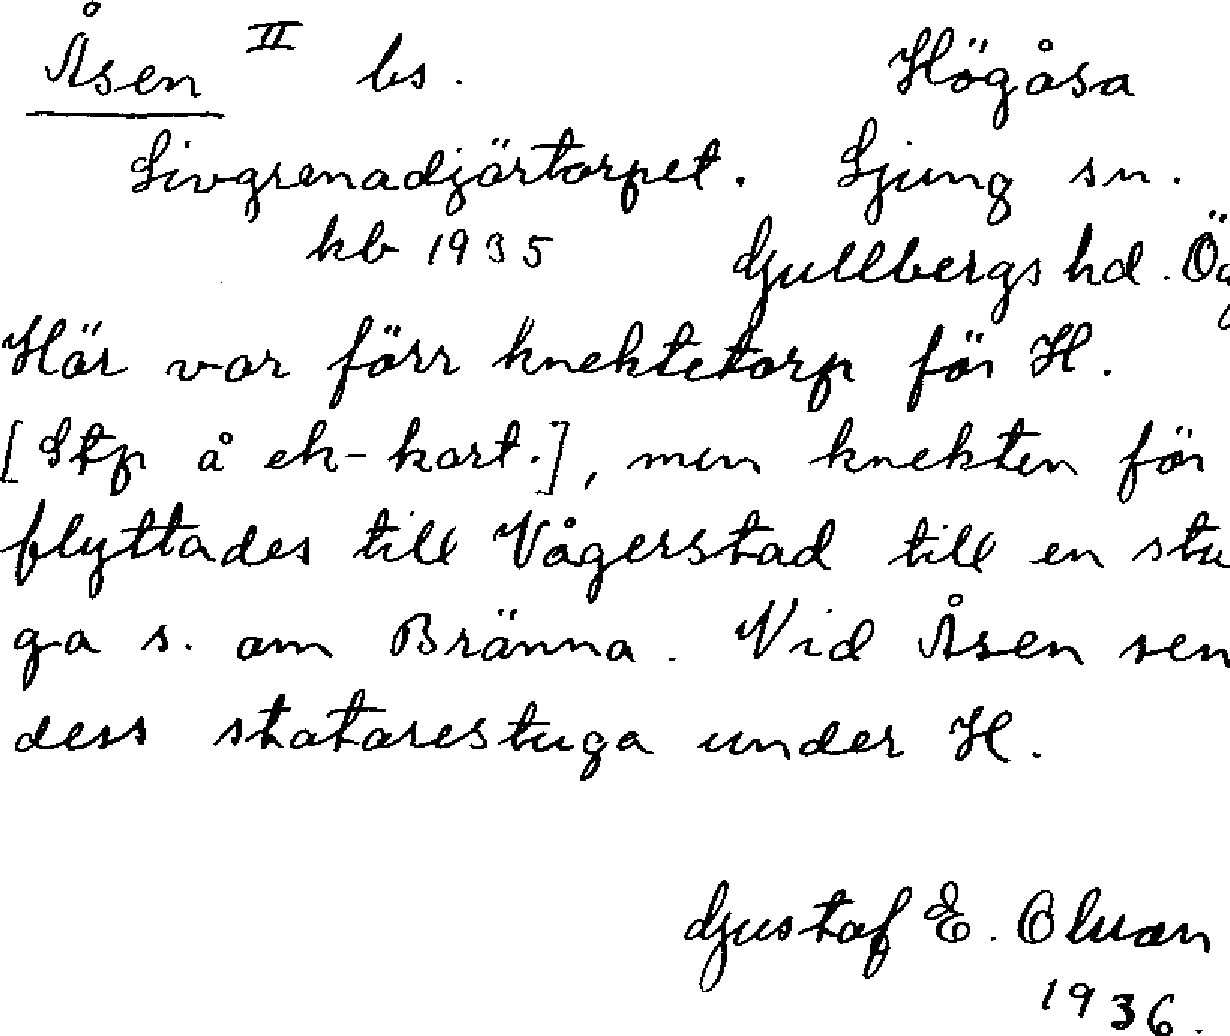 Åsen II bs. Högåsa
Livgrenadjärtorpet. Ljung sn.
kb 1935 Gullbergs hd. Ög
Här var förr knektetorp för H.
[Stp å ek-kart.], men knekten för
flyttades till Vågerstad till en stu
ga s. om Bränna. Vid Åsen sen
dess statarestuga under H.
Gustaf E. Olson
1936.